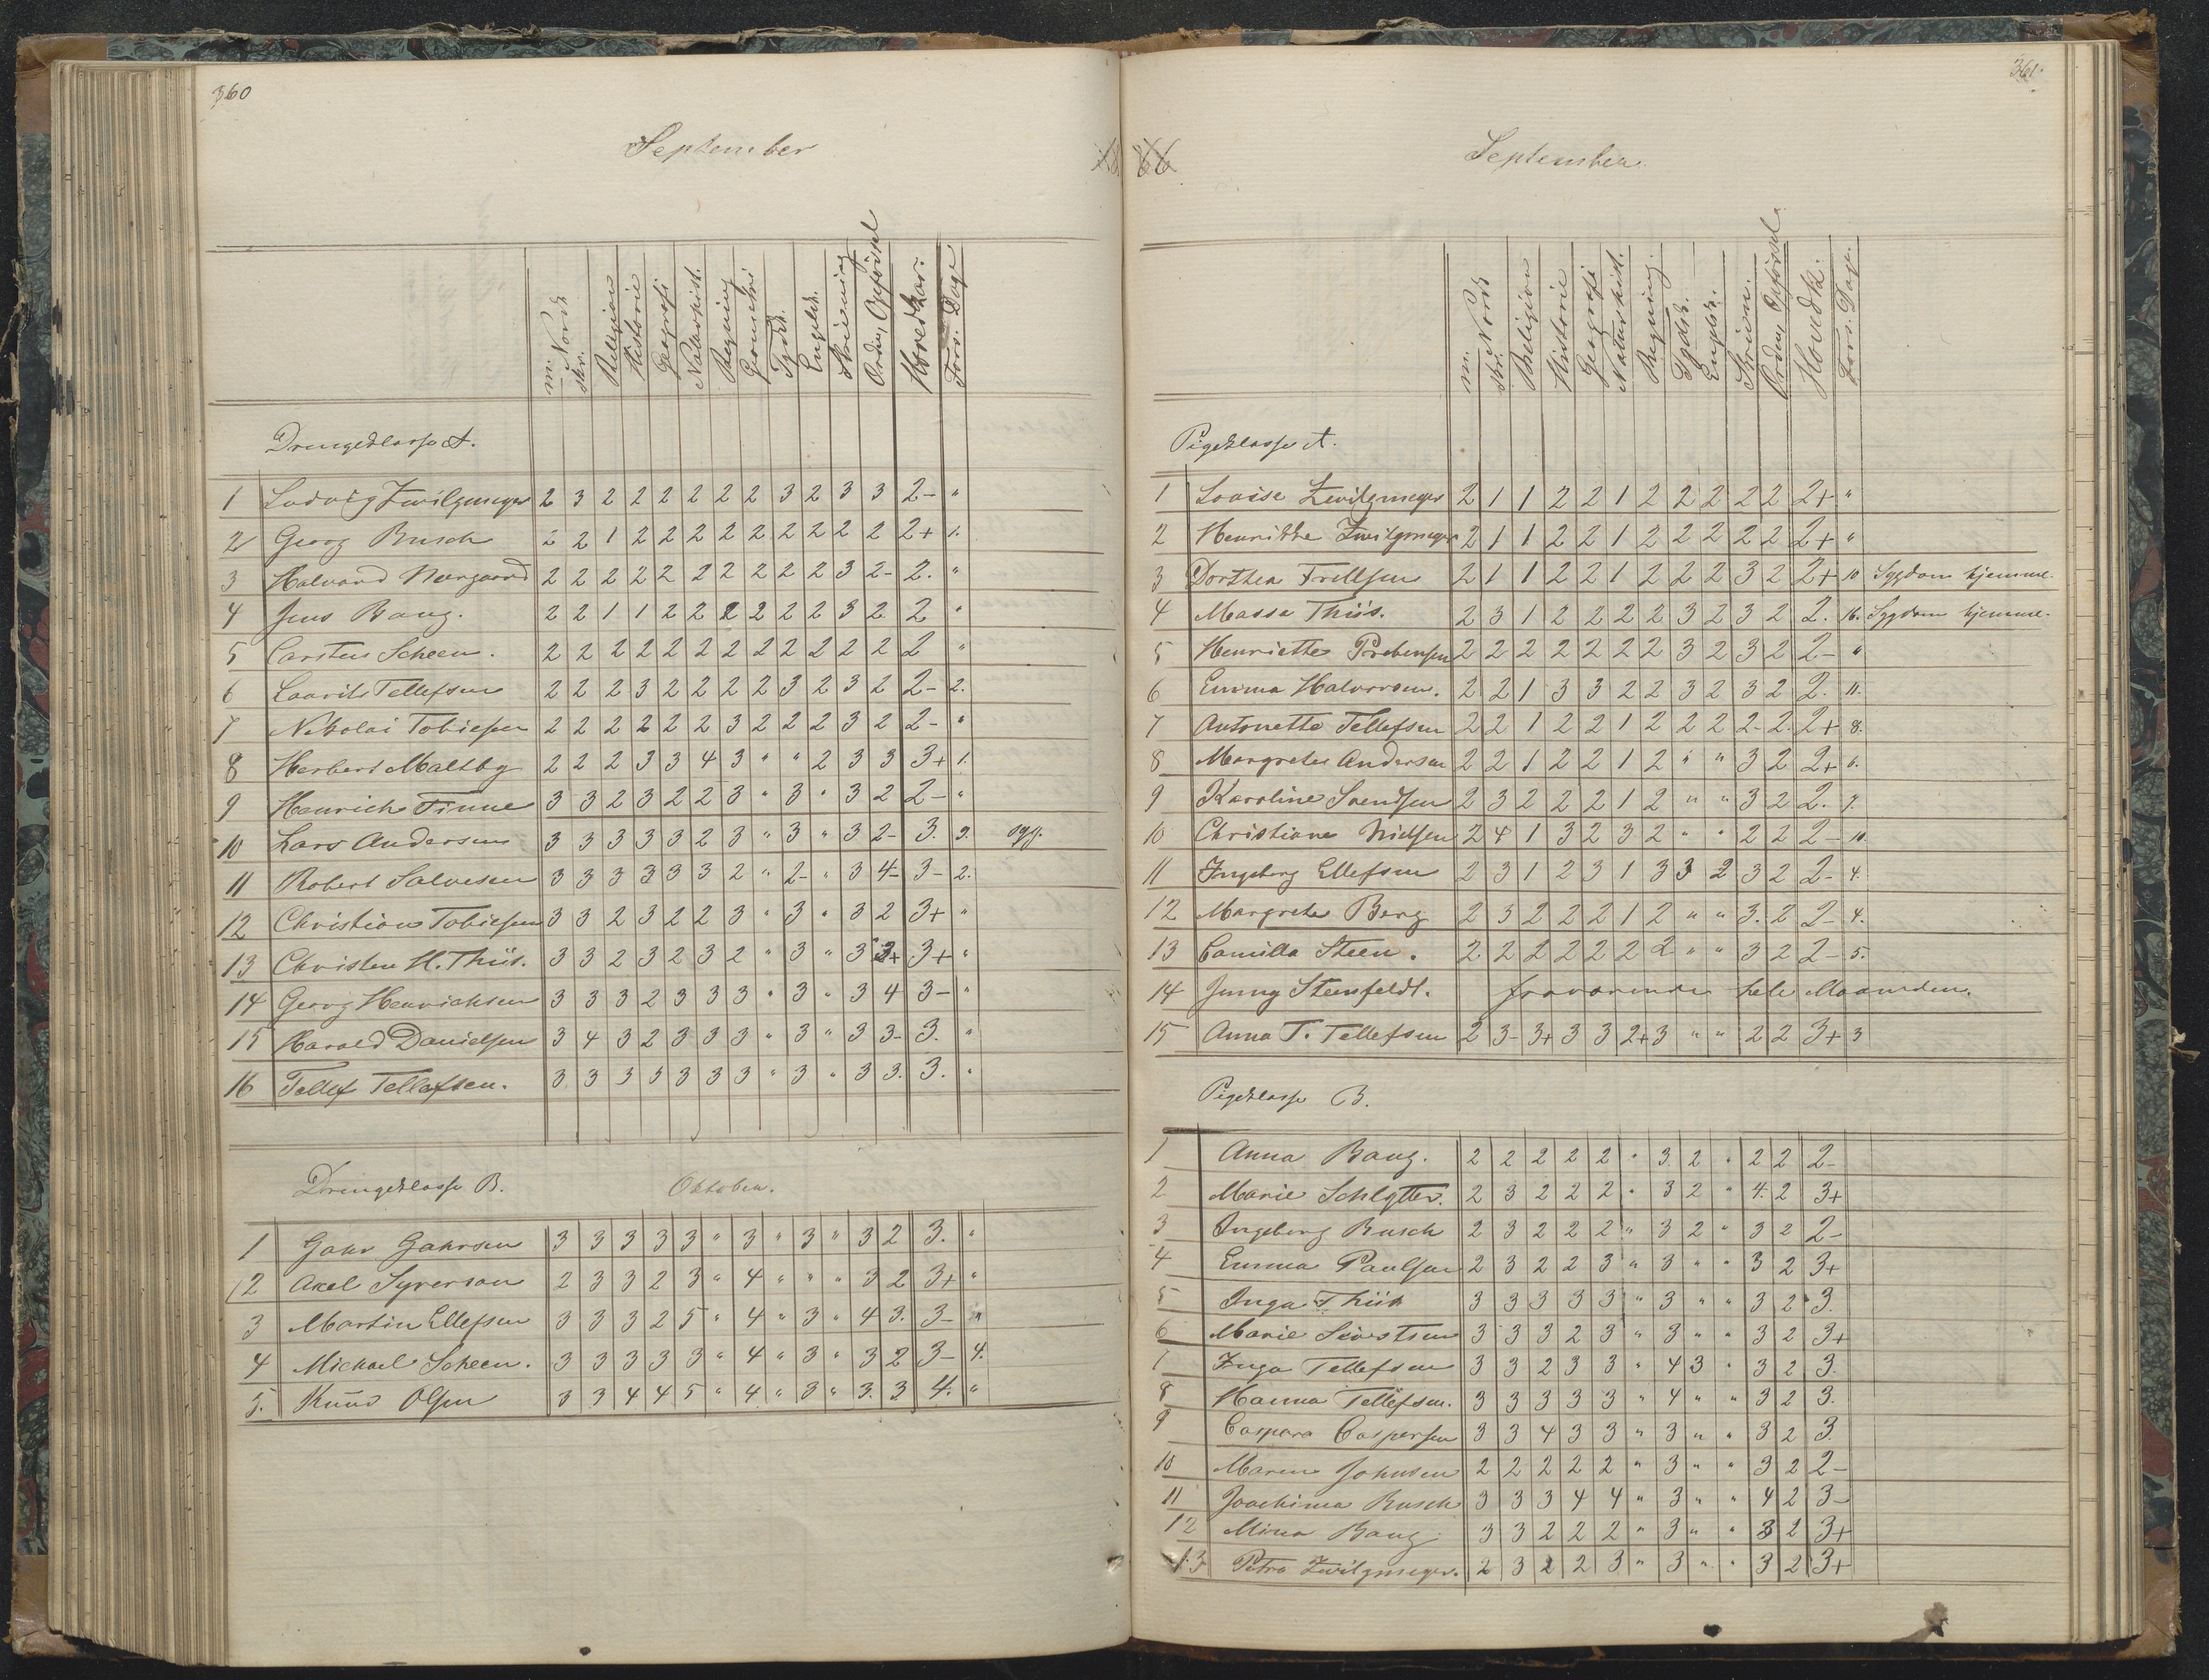 360
September
m. Norsk
skr.
Religion
Historie
Geografi
Naturhist.
Regning
Geometri
Tydsk.
Engelsk.
Skrivning
Orden, Opførsel
Hovedkar:
Fors. Dage
Drengeklasse A.
1 Ludvig Zwilgmeyer 2 3 2 2 2 2 2 2 3 2 3 3 2- "
2 Georg Busch 2 2 1 2 2 2 2 2 2 2 2 2 2+ 1.
3 Halvard Neergaard 2 2 2 2 2 2 2 2 2 2 3 2- 2. "
4 Jens Bang. 2 2 1 1 2 2 2 2 2 2 3 2 2 "
5 Carsten Scheen. 2 2 2 2 2 2 2 2 2 2 2 2 2 "
6 Laurits Tellefsen 2 2 2 3 2 2 2 2 3 2 3 2 2- 2.
7 Nikolai Tobiesen 2 2 2 2 2 2 3 2 2 2 3 2 2- "
8 Herbert Maltby 2 2 2 3 3 4 3 " " 2 3 3 3+ 1.
9 Henrich Finne 3 3 2 3 2 2 3 " 3 " 3 2 2- "
10 Lars Andersen 3 3 3 3 3 2 3 " 3 " 3 2- 3. 2. syg.
11 Robert Salvesen 3 3 3 3 3 3 2 " 2- " 3 4- 3- 2.
12 Christian Tobiesen 3 3 2 3 2 2 3 " 3 " 3 2 3+ "
13 Christen H. Thiis. 3 3 2 3 2 3 2 " 3 " 3 3+ 3+ "
14 Georg Henrichsen 3 3 3 2 3 3 3 " 3 " 3 4 3- "
15 Harald Danielsen 3 4 3 2 3 3 3 " 3 " 3 3- 3. "
16 Tellef Tellefsen. 3 3 3 3 3 3 3 " 3 " 3 3. 3. "
Drengeklasse B. Oktober.
1 Gahr Gahrsen 3 3 3 3 3 " 3 " 3 " 3 2 3. "
2 Axel Syverson 2 3 3 2 3 " 4 " " " 3 2 3+ "
3 Martin Ellefsen 3 3 3 2 5 " 4 " 3 " 4 3. 3- "
4 Michael Scheen. 3 3 3 3 3 " 4 " 3 " 3 2 3- 4.
5. Knud Olsen 3 3 4 4 5 " 4 " 3 " 3. 3 4. "
361
66
September
m. Norsk
skr.
Religion
Historie
Geografi
Naturhist.
Regning.
Tydsk.
Engelsk.
Skrivn.
Orden, Opførsel
Hovedk.
Fors. Dage.
Pigeklasse A.
1 Louise Zwilgmeyer 2 1 1 2 2 1 2 2 2 2 2 2+ "
2 Henrikke Zwilgmeyer 2 1 1 2 2 1 2 2 2 2 2 2+ "
3 Dorthea Frellsen 2 1 1 2 2 1 2 2 2 3 2 2+ 10 Sygdom hjemme.
4 Massa Thiis. 2 3 1 2 2 2 2 3 2 3 2 2. 16. Sygdom hjemme.
5 Henriette Prebensen 2 2 2 2 2 2 2 3 2 3 2 2- "
6 Emma Halvorsen. 2 2 1 3 3 2 2 3 2 3 2 2. 11.
7 Antonette Tellefsen 2 2 1 2 2 1 2 2 2 2- 2. 2+ 8.
8 Margrethe Andersen 2 2 1 2 2 1 2 " " 3 2 2+ 6.
9 Karoline Svendsen 2 3 2 2 2 1 2 " " 3 2 2. 7.
10 Christiane Nielsen 2 4 1 3 2 3 2 " " 2 2 2- 10.
11 Ingeborg Ellefsen 2 3 1 2 3 1 3 3 2 3 2 2- 4.
12 Margrete Berg 2 3 2 2 2 1 2 " " 3. 2 2- 4.
13 Camilla Steen. 2 2 2 2 2 2 2 " " 3 2 2- 5.
14 Jenny Steenfeldt. fraværende hele Maaneden.
15 Anna T. Tellefsen 2 3- 3+ 3 3 2+ 3 " " 2 2 3+ 3
Pigeklasse B.
1 Anna Bang. 2 2 2 2 2 " 3 2 " 2 2 2-
2 Marie Schlytter. 2 3 2 2 2 " 3 2 " 4. 2 3+
3 Ingeborg Busch 2 3 2 2 2 " 3 2 " 3 2 2-
4 Emma Paulsen 2 3 2 2 3 " 3 " " 3 2 3+
5 Inga Thiis 3 3 3 3 3 " 3 " " 3 2 3.
6 Marie Sivertsen 3 3 3 2 3 " 3 " " 3 2 3+
7 Inga Tellefsen 3 3 2 3 3 " 4 3 " 3 2 3.
8 Hanna Tellefsen. 3 3 3 3 3 " 4 " " 3 2 3.
9 Caspara Caspersen 3 3 4 3 3 " 3 " " 3 2 3.
10 Maren Johnsen 2 2 2 2 2 " 3 " " 3 2 2-
11 Joachima Busch 3 3 3 4 4 " 3 " " 4 2 3-
12 Mina Bang 3 3 2 2 2 " 3 " " 3 2 3+
13 Petra Zwilgmeyer. 2 3 2 2 3 " 3 " " 3 2 3+